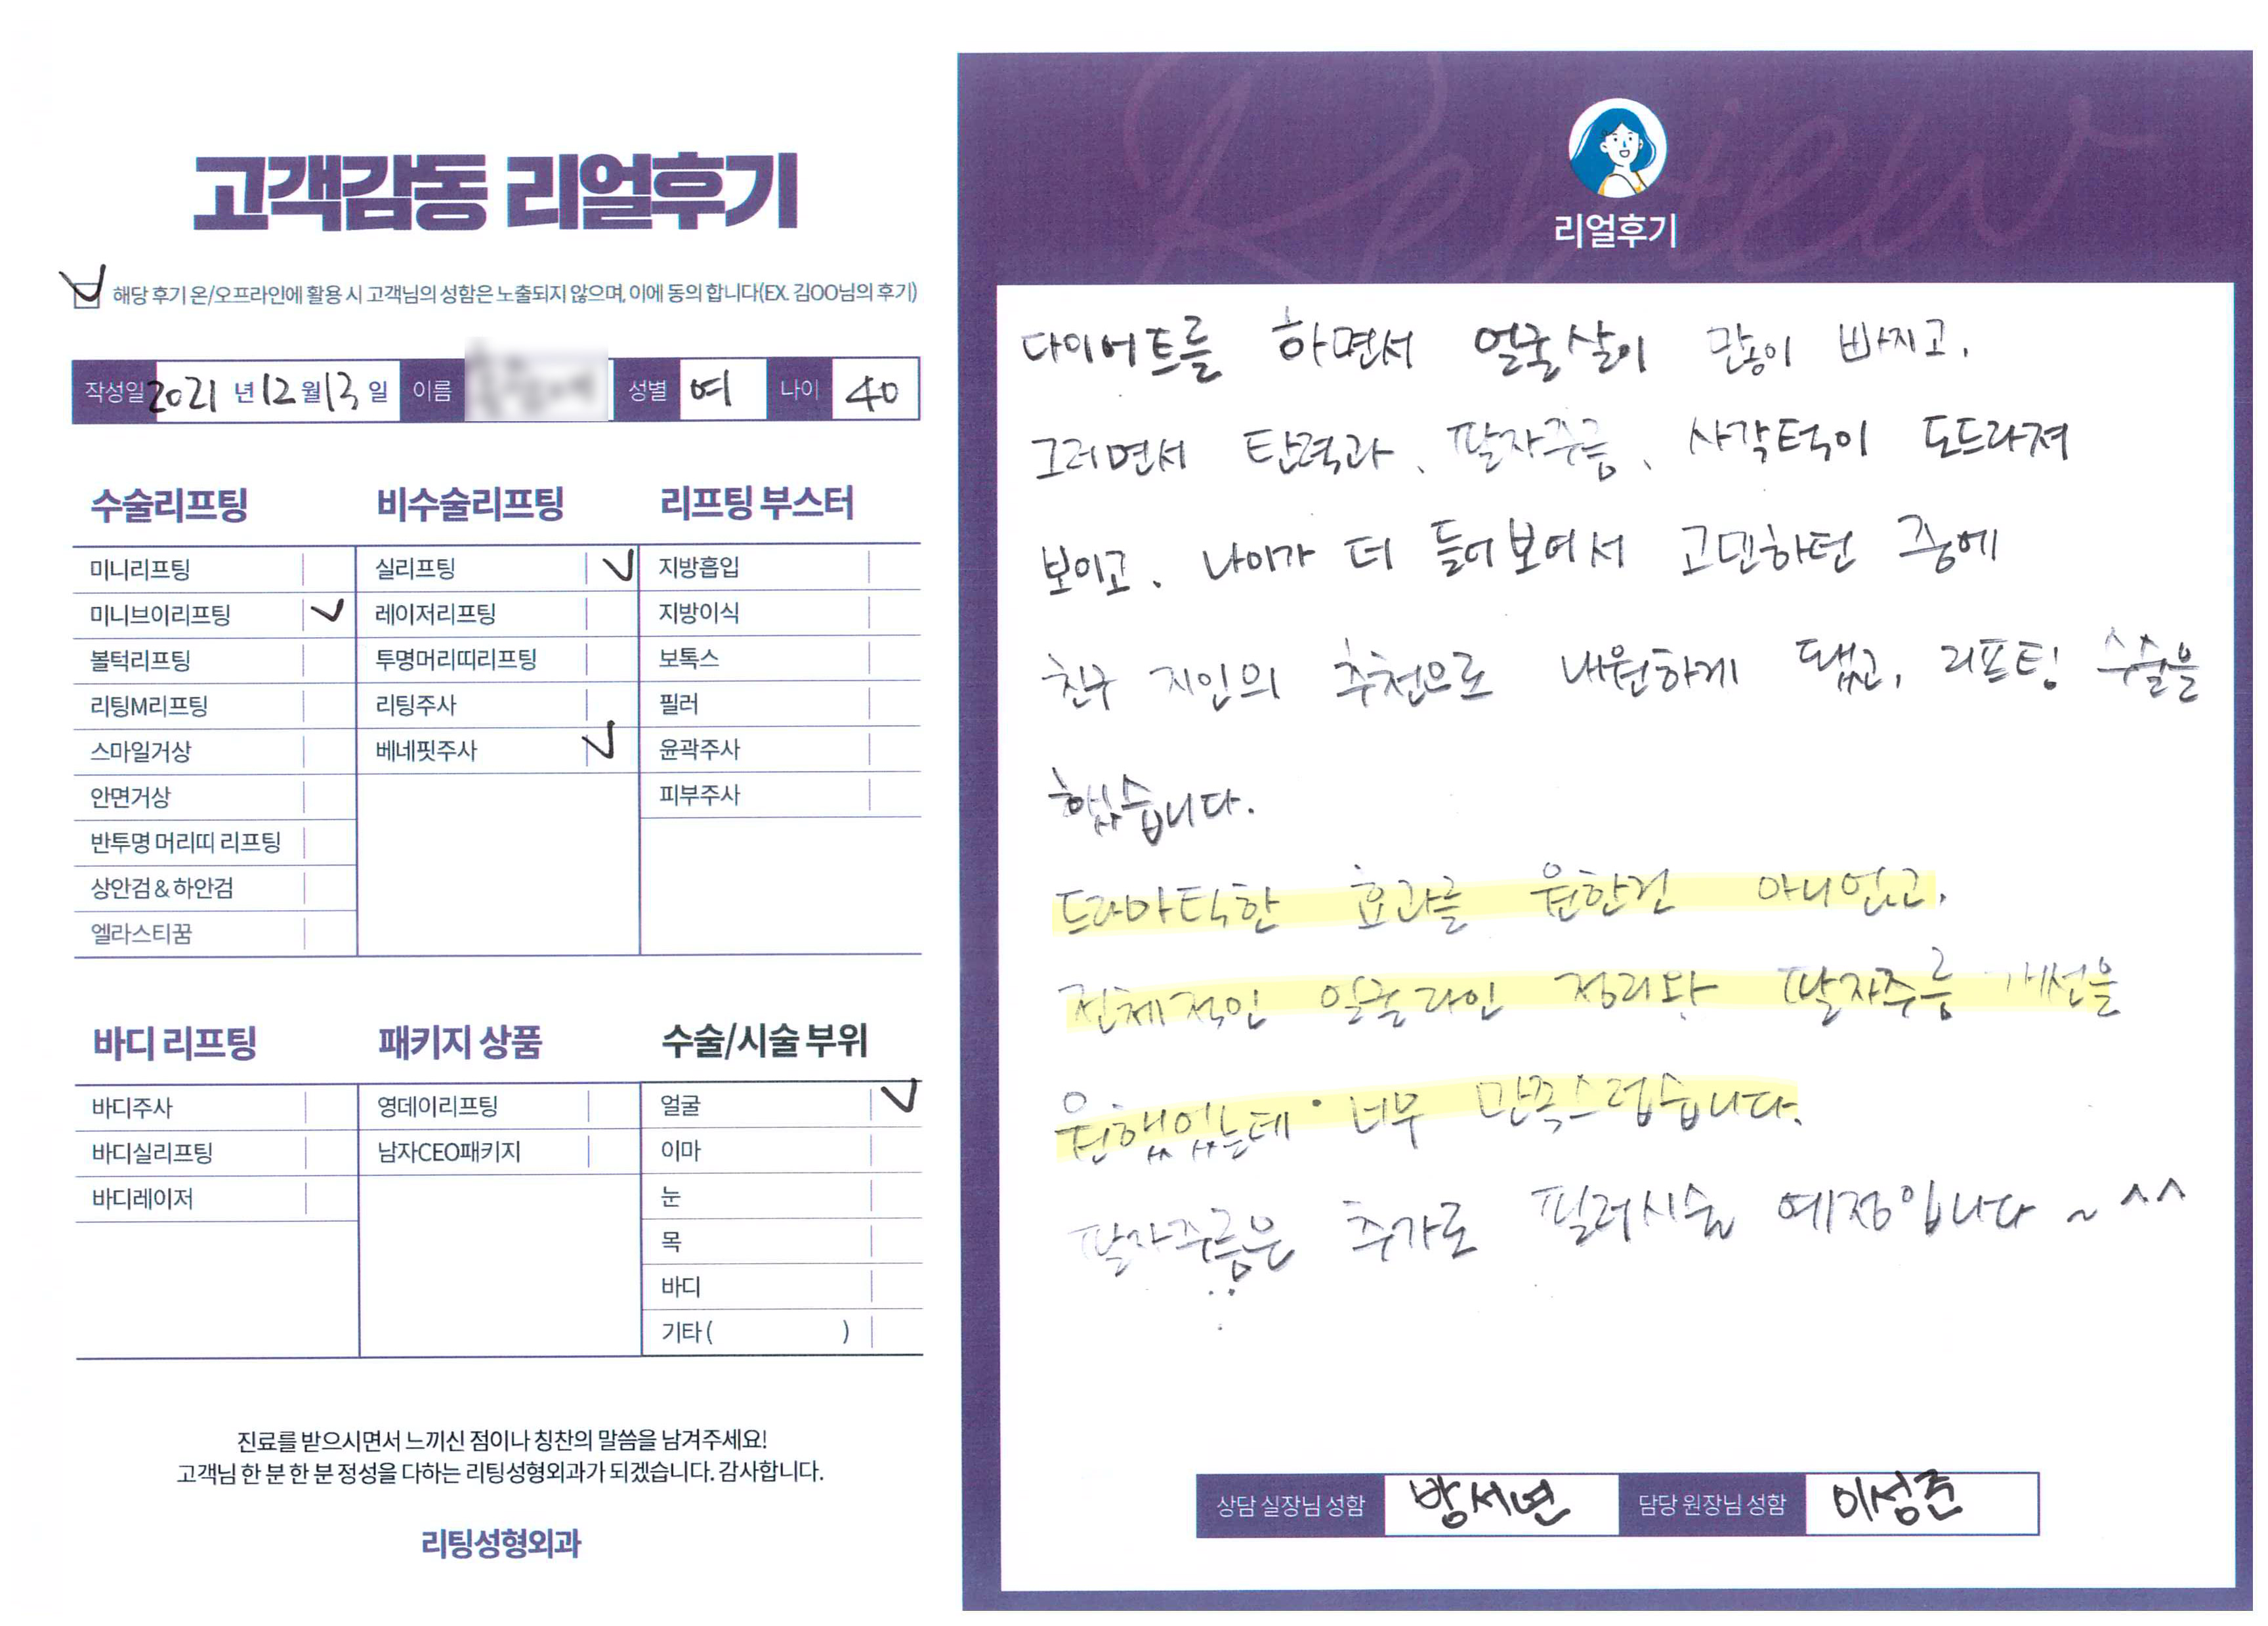 고객감동 리얼후기
해당 후기 온/오프라인에 활용 시 고객님의 성함은 노출되지 않으며, 이에 동의 합니다(EX. 김OO님의 후기)
작성일 2021 년 12 월 13 일 이름 성별 여 나이 40
수술리프팅
미니리프팅
미니브이리프팅
볼턱리프팅
리팅M리프팅
스마일거상
안면거상
반투명 머리띠 리프팅
상안검 & 하안검
엘라스티꿈
비수술리프팅
실리프팅
레이저리프팅
투명머리띠리프팅
리팅주사
베네핏주사
리프팅 부스터
지방흡입
지방이식
보톡스
필러
윤곽주사
피부주사
바디 리프팅
바디주사
바디실리프팅
바디레이저
패키지 상품
영데이리프팅
남자CEO패키지
수술/시술 부위
얼굴
이마
눈
목
바디
기타 ( )
진료를 받으시면서 느끼신 점이나 칭찬의 말씀을 남겨주세요!
고객님 한 분 한 분 정성을 다하는 리팅성형외과가 되겠습니다. 감사합니다.
리팅성형외과
Review
리얼후기
다이어트를 하면서 얼굴살이 많이 빠지고,
그러면서 탄력과, 팔자주름, 사각턱이 도드라져
보이고, 나이가 더 들어보여서 고민하던 중에
친구 지인의 추천으로 내원하게 됐고, 리프팅 수술을
했습니다.
드라마틱한 효과를 원한건 아니었고,
전체적인 얼굴라인 정리와 팔자주름 개선을
원했었는데 너무 만족스럽습니다.
팔자주름은 추가로 필러시술 예정입니다 ~ ^^
상담 실장님 성함 방서연 담당 원장님 성함 이성준